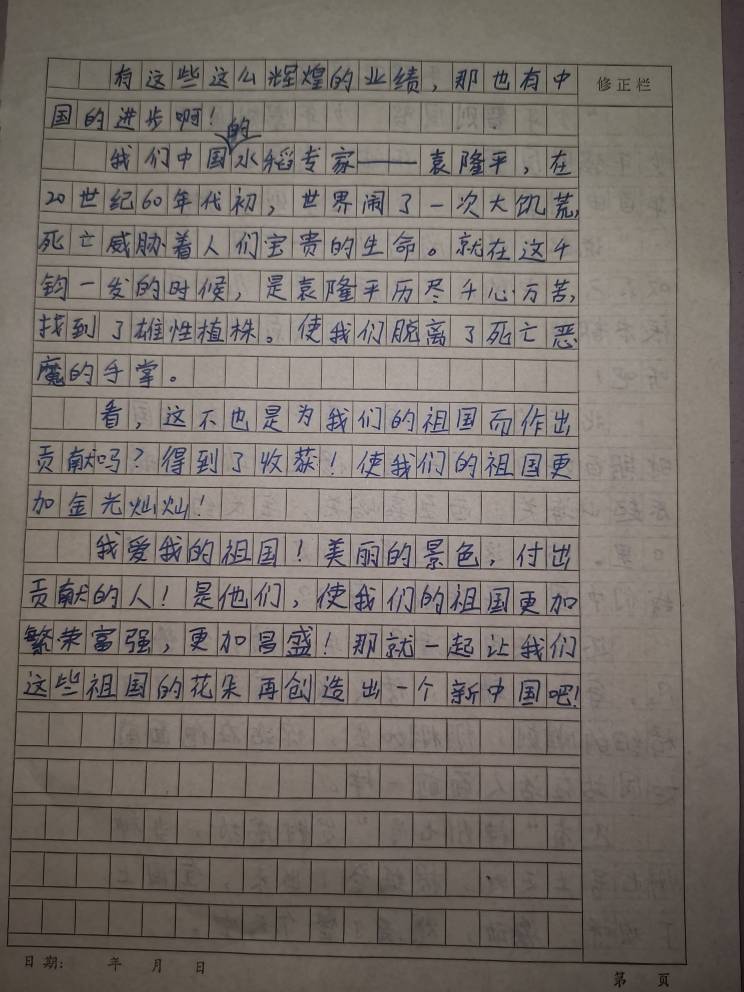 有这些这么辉煌的业绩，那也有中
修正栏
国的进步啊！
的
我们中国水稻专家——袁隆平，在
20世纪60年代初，世界闹了一次大饥荒，
死亡威胁着人们宝贵的生命。就在这千
钧一发的时候，是袁隆平历尽千心万苦，
找到了雄性植株。使我们脱离了死亡恶
魔的手掌。
看，这不也是为我们的祖国而作出
贡献吗？得到了收获！使我们的祖国更
加金光灿灿！
我爱我的祖国！美丽的景色，付出
贡献的人！是他们，使我们的祖国更加
繁荣富强，更加昌盛！那就一起让我们
这些祖国的花朵再创造出一个新中国吧！
日期： 年 月 日
第 页